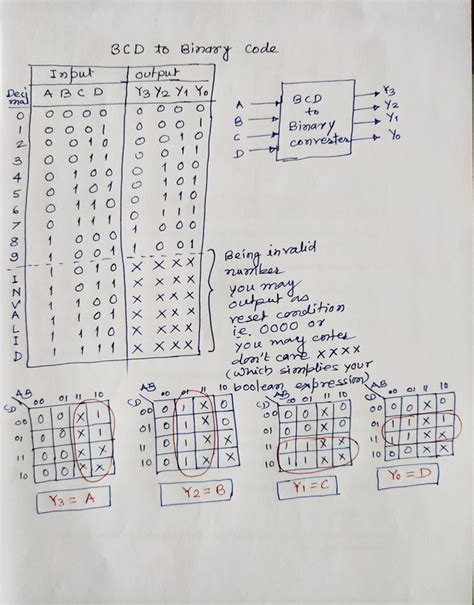 BCD to Binary Code
Input output
Decimal A B C D Y3 Y2 Y1 Y0
0 0 0 0 0 0 0 0 0
1 0 0 0 1 0 0 0 1
2 0 0 1 0 0 0 1 0
3 0 0 1 1 0 0 1 1
4 0 1 0 0 0 1 0 0
5 0 1 0 1 0 1 0 1
6 0 1 1 0 0 1 1 0
7 0 1 1 1 0 1 1 1
8 1 0 0 0 1 0 0 0
9 1 0 0 1 1 0 0 1
I 1 0 1 0 X X X X
N 1 0 1 1 X X X X
V
A 1 1 0 0 X X X X
L 1 1 0 1 X X X X
I 1 1 1 0 X X X X
D 1 1 1 1 X X X X
A
B
C
D
BCD
to
Binary
converter
Y3
Y2
Y1
Y0
Being invalid
number
you may
output as
reset condition
i.e. 0000 or
you may enter
don't care XXXX
(which simplies your
boolean expression)
AB
CD 00 01 11 10
00 0 0 X 1
01 0 0 X 1
11 0 0 X X
10 0 0 X X
Y3 = A
AB
CD 00 01 11 10
00 0 1 X 0
01 0 1 X 0
11 0 1 X X
10 0 1 X X
Y2 = B
AB
CD 00 01 11 10
00 0 0 X 0
01 0 0 X 0
11 1 1 X X
10 1 1 X X
Y1 = C
AB
CD 00 01 11 10
00 0 0 X 0
01 1 1 X 1
11 1 1 X X
10 0 0 X X
Y0 = D